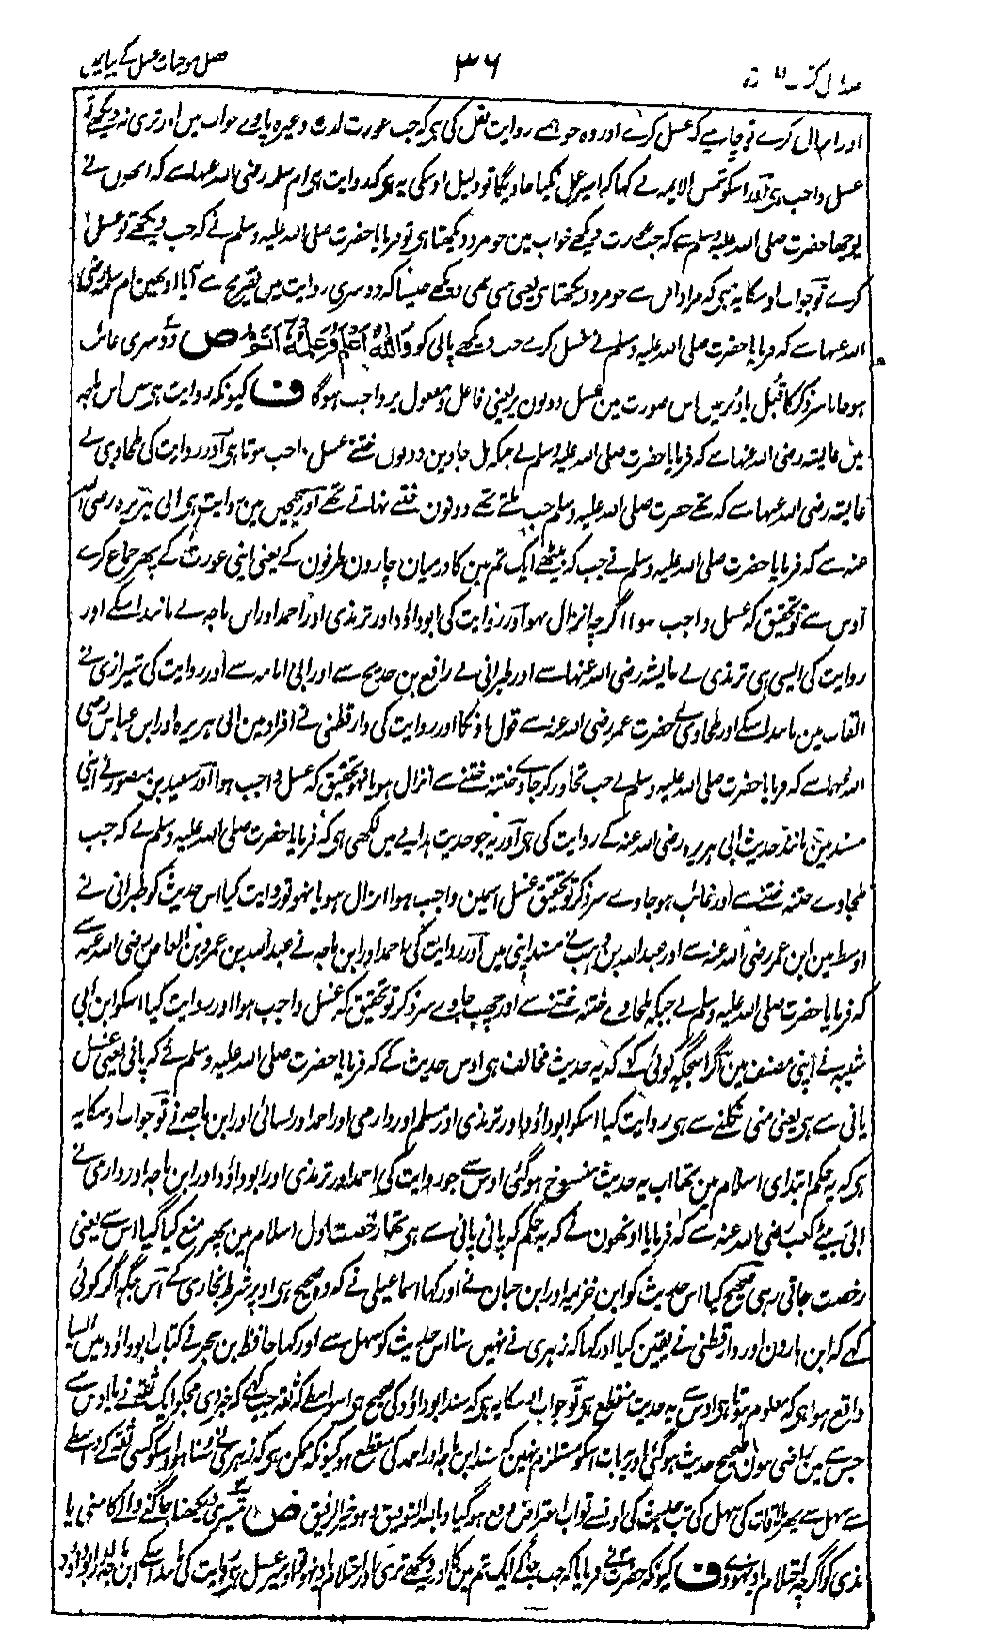 ۳۶
اور انزال کرے تو چاہیے کہ غسل کرے اور وہ جو روایت نقل کی ہی کہ جب عورت لذت وغیرہ پاوے خواب میں اور تری نہ دیکھے تو
غسل واجب ہی اور اسکو شمس الایمہ نے کہا کہ اسپر عمل نکیا جاویگا تو دلیل اوسکی یہ ہی کہ روایت ہی ام سلمہ رضی اللہ عنہا سے کہ انہوں نے
پوچھا حضرت صلی اللہ علیہ وسلم سے کہ جب عورت دیکھے خواب مین جو مرد دیکھتا ہی تو فرمایا حضرت صلی اللہ علیہ وسلم نے کہ جب دیکھے تو غسل
کرے تو جواب اوسکا یہ ہی کہ مراد اس سے جو مرد دیکھتا ہی یعنی منی بھی دیکھے جیسا کہ دوسری روایت میں تصریح سے آیا اونھین ام سلمہ رضی
اللہ عنہا سے کہ فرمایا حضرت صلی اللہ علیہ وسلم نے غسل کرے جب دیکھے پانی کو واللہ اعلم ص دوسری غائب
ہو جانا سر ذکر کا قبل یا دبر میں اس صورت مین غسل دونون پر یعنی فاعل و مفعول پر واجب ہوگا ف کیونکہ روایت ہی
عایشہ رضی اللہ عنہا سے کہ فرمایا حضرت صلی اللہ علیہ وسلم نے جبکہ مل جاوین دونوں ختنے غسل واجب ہوتا ہی اور روایت کی طحاوی نے
عایشہ رضی اللہ عنہا سے کہ تھے حضرت صلی اللہ علیہ وسلم جب ملتے تھے دونون ختنے نہاتے تھے اور صحیحین مین روایت ہی ابی ہریرہ رضی اللہ
عنہ سے کہ فرمایا حضرت صلی اللہ علیہ وسلم نے جب کہ بیٹھے ایک تم مین کا درمیان چارون طرفون کے یعنی اپنی عورت کے پھر جماع کرے
اوس سے تو تحقیق کہ غسل واجب ہوا اگرچہ انزال نہو اور روایت کی ابو داؤد اور ترمذی اور احمد اور ابن ماجہ نے مانند اسکے اور
روایت کی ایسی ہی ترمذی نے عایشہ رضی اللہ عنہا سے اور طبرانی نے رافع بن خدیج سے اور ابی امامہ سے اور روایت کی شیرازی نے
القاب مین مانند اسکے اور طحاوی نے حضرت عمر رضی اللہ عنہ سے قول اونکا اور روایت کی دارقطنی نے افراد مین ابی ہریرہ اور ابن عباس رضی
اللہ عنہما سے کہ فرمایا حضرت صلی اللہ علیہ وسلم نے جب تجاوز کر جاوے ختنہ ختنے سے انزال ہو یا نہو تحقیق کہ غسل واجب ہوا اور سعید بن منصور نے اپنی
مسند مین مانند حدیث ابی ہریرہ رضی اللہ عنہ کے روایت کی ہی اور یہ جو حدیث ہدایے مین لکھی ہی کہ فرمایا حضرت صلی اللہ علیہ وسلم نے کہ جب
ملجاوے ختنہ ختنے سے اور غائب ہو جاوے سر ذکر تو تحقیق غسل اسمین واجب ہوا انزال ہو یا نہو تو روایت کیا اس حدیث کو طبرانی نے
اوسط مین ابن عمر رضی اللہ عنہ سے اور عبد اللہ بن وہب نے مسند اپنی میں اور روایت کی احمد اور ابن ماجہ نے عبد اللہ بن عمرو بن العاص رضی اللہ عنہ سے
کہ فرمایا حضرت صلی اللہ علیہ وسلم نے جبکہ ملجاوے ختنہ ختنے سے اور چھپ جاوے سر ذکر تو تحقیق کہ غسل واجب ہوا اور روایت کیا اسکو ابن ابی
شیبہ نے اپنی مصنف مین اگر اسجگہ کوئی کہے کہ یہ حدیث مخالف ہی اوس حدیث کے کہ فرمایا حضرت صلی اللہ علیہ وسلم نے کہ پانی یعنی غسل
پانی سے ہی یعنی منی نکلنے سے ہی روایت کیا اسکو ابو داؤد اور ترمذی اور مسلم اور دارمی اور احمد اور نسائی اور ابن ماجہ نے تو جواب اوسکا یہ
ہی کہ یہ حکم ابتدای اسلام مین تھا اب یہ حدیث منسوخ ہوگئی اوس سے جو روایت کی احمد اور ترمذی اور ابو داؤد اور ابن ماجہ اور دارمی نے
ابی بیٹے کعب رضی اللہ عنہ سے کہ فرمایا اونھون نے کہ یہ حکم کہ پانی پانی سے ہی تھا رخصت اول اسلام مین پھر منع کیا گیا اس سے یعنی
رخصت جاتی رہی صحیح کیا اس حدیث کو ابن خزیمہ اور ابن حبان نے اور کہا اسماعیلی نے کہ وہ صحیح ہی اوپر شرط بخاری کے اس جگہ اگر کوئی
کہے کہ ابن ہارون اور دارقطنی نے یقین کیا اور کہا کہ زہری نے نہیں سنا اس حدیث کو سہل سے اور کہا حافظ بن حجر نے کتاب ابو داؤد میں ایسا
واقع ہوا ہی کہ معلوم ہوتا ہی اوس سے یہ حدیث منقطع ہی تو جواب اسکا یہ ہی کہ سند ابو داؤد کی صحیح ہی اسواسطے کہ ثقہ جب کہے کہ خبر دی مجکو ایک ثقے نے یا اوس سے
جس سے مین راضی ہون صحیح حدیث ہوگئی اور یہ بات اسکو مستلزم نہین کہ سند ابن ماجہ اور احمد کی منقطع ہو کیونکہ ممکن ہی کہ زہری نے سنا ہو اسکو کسی ثقہ کے واسطے
سے سہل سے پھر ملاقات کی سہل کی تب حدیث کی اونسے تو اب اعتراض دفع ہوگیا وباللہ التوفیق وہو خیر الرفیق ص تیسری دیکھنا جاگنے والے کا منی یا
مذی کو اگرچہ احتلام یاد نہووے ف کیونکہ حضرت نے فرمایا کہ جب جاگے ایک تم مین کا اور دیکھے تری اور احتلام یاد نہو تو اوسپر غسل ہی روایت کی مانند اسکے ابن ماجہ اور ابو داؤد